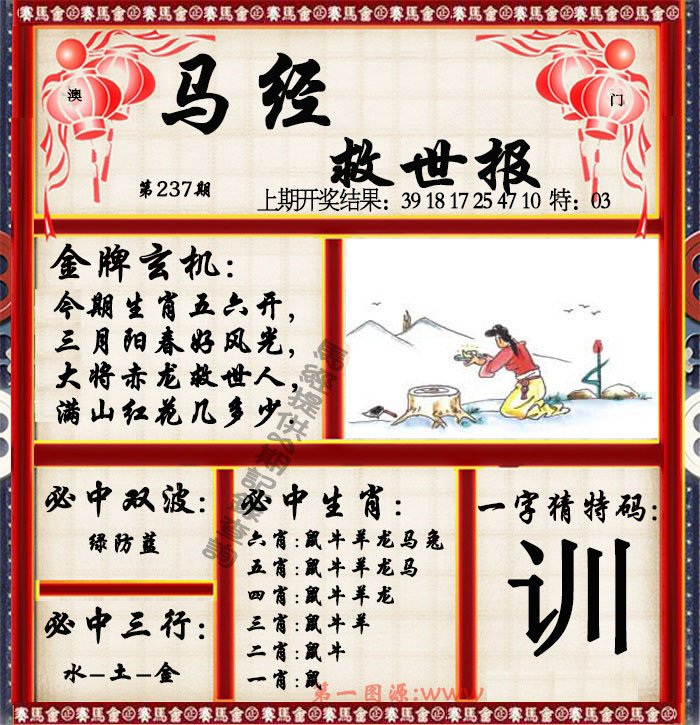 賽馬會正金賽馬會正金賽馬會正金賽馬會正金賽馬會正金
澳
门
马经
救世报
第237期
上期开奖结果：39 18 17 25 47 10 特：03
金牌玄机：
今期生肖五六开，
三月阳春好风光，
大将赤龙救世人，
满山红花几多少.
必中双波：
绿防蓝
必中三行：
水-土-金
必中生肖：
六肖：鼠牛羊龙马兔
五肖：鼠牛羊龙马
四肖：鼠牛羊龙
三肖：鼠牛羊
二肖：鼠牛
一肖：鼠
一字猜特码：
训
第一图源:www